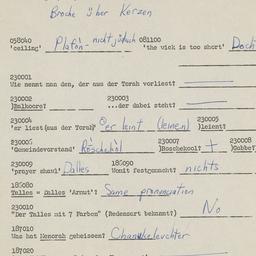 Broche über Kerzen
058040 081100
'ceiling' Platōn - nicht jüdisch 'the wick is too short' Docht
230001
Wie nennt man den, der aus der Torah vorliest?
230002 230003
)Balkoore? ...der dabei steht?
230004 230005
'er liest (aus der Torah)' er leint (leinen) leient?
230006 230007 230008
'Gemeindevorstand' )Boschekool? + )Gabbe?
230009 185090
'prayer shawl' Dalles Womit festgemacht? nichts
185080
Talles = Dalles 'Armut'? Same pronunciation
230010
"Der Talles mit 7 Farben" (Redensart bekannt?) No
187010
Was hat Menorah geheissen? Chanukeleuchter
187020